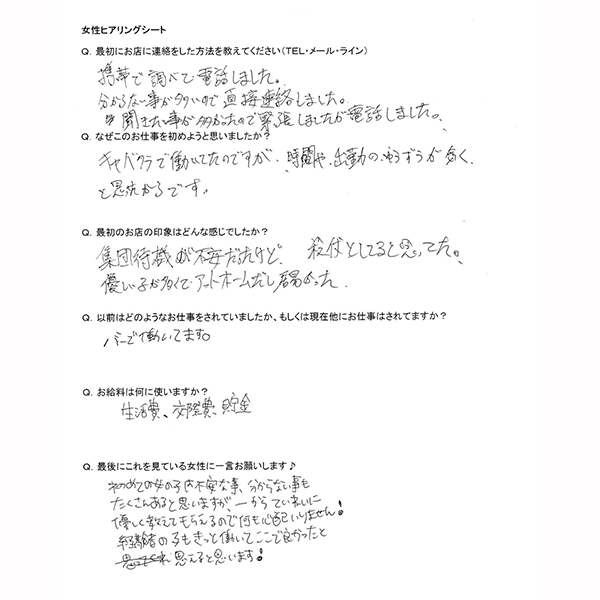 女性ヒアリングシート
Q. 最初にお店に連絡をした方法を教えてください(TEL・メール・ライン)
携帯で調べて電話しました。
分からない事が多いので直接連絡しました。
聞きたい事が多かったので緊張しましたが電話しました。
Q. なぜこのお仕事を初めようと思いましたか?
キャバクラで働いてたのですが、時間や、出勤のゆうずうが気く
と思ったからです。
Q. 最初のお店の印象はどんな感じでしたか?
集団待機が不安だったけど、殺伐としてると思ってた。
優しい子が多くて、アットホームだし居易かった
Q. 以前はどのようなお仕事をされていましたか、もしくは現在他にお仕事はされてますか?
バーで働いてます。
Q. お給料は何に使いますか?
生活費、交際費、貯金
Q. 最後にこれを見ている女性に一言お願いします♪
初めての女の子は不安な事、分からない事も
たくさんあると思いますが、一からていねいに
優しく教えてもらえるので何も心配いりません!
経験者の子もきっと働いてここで良かったと
思えると思います!